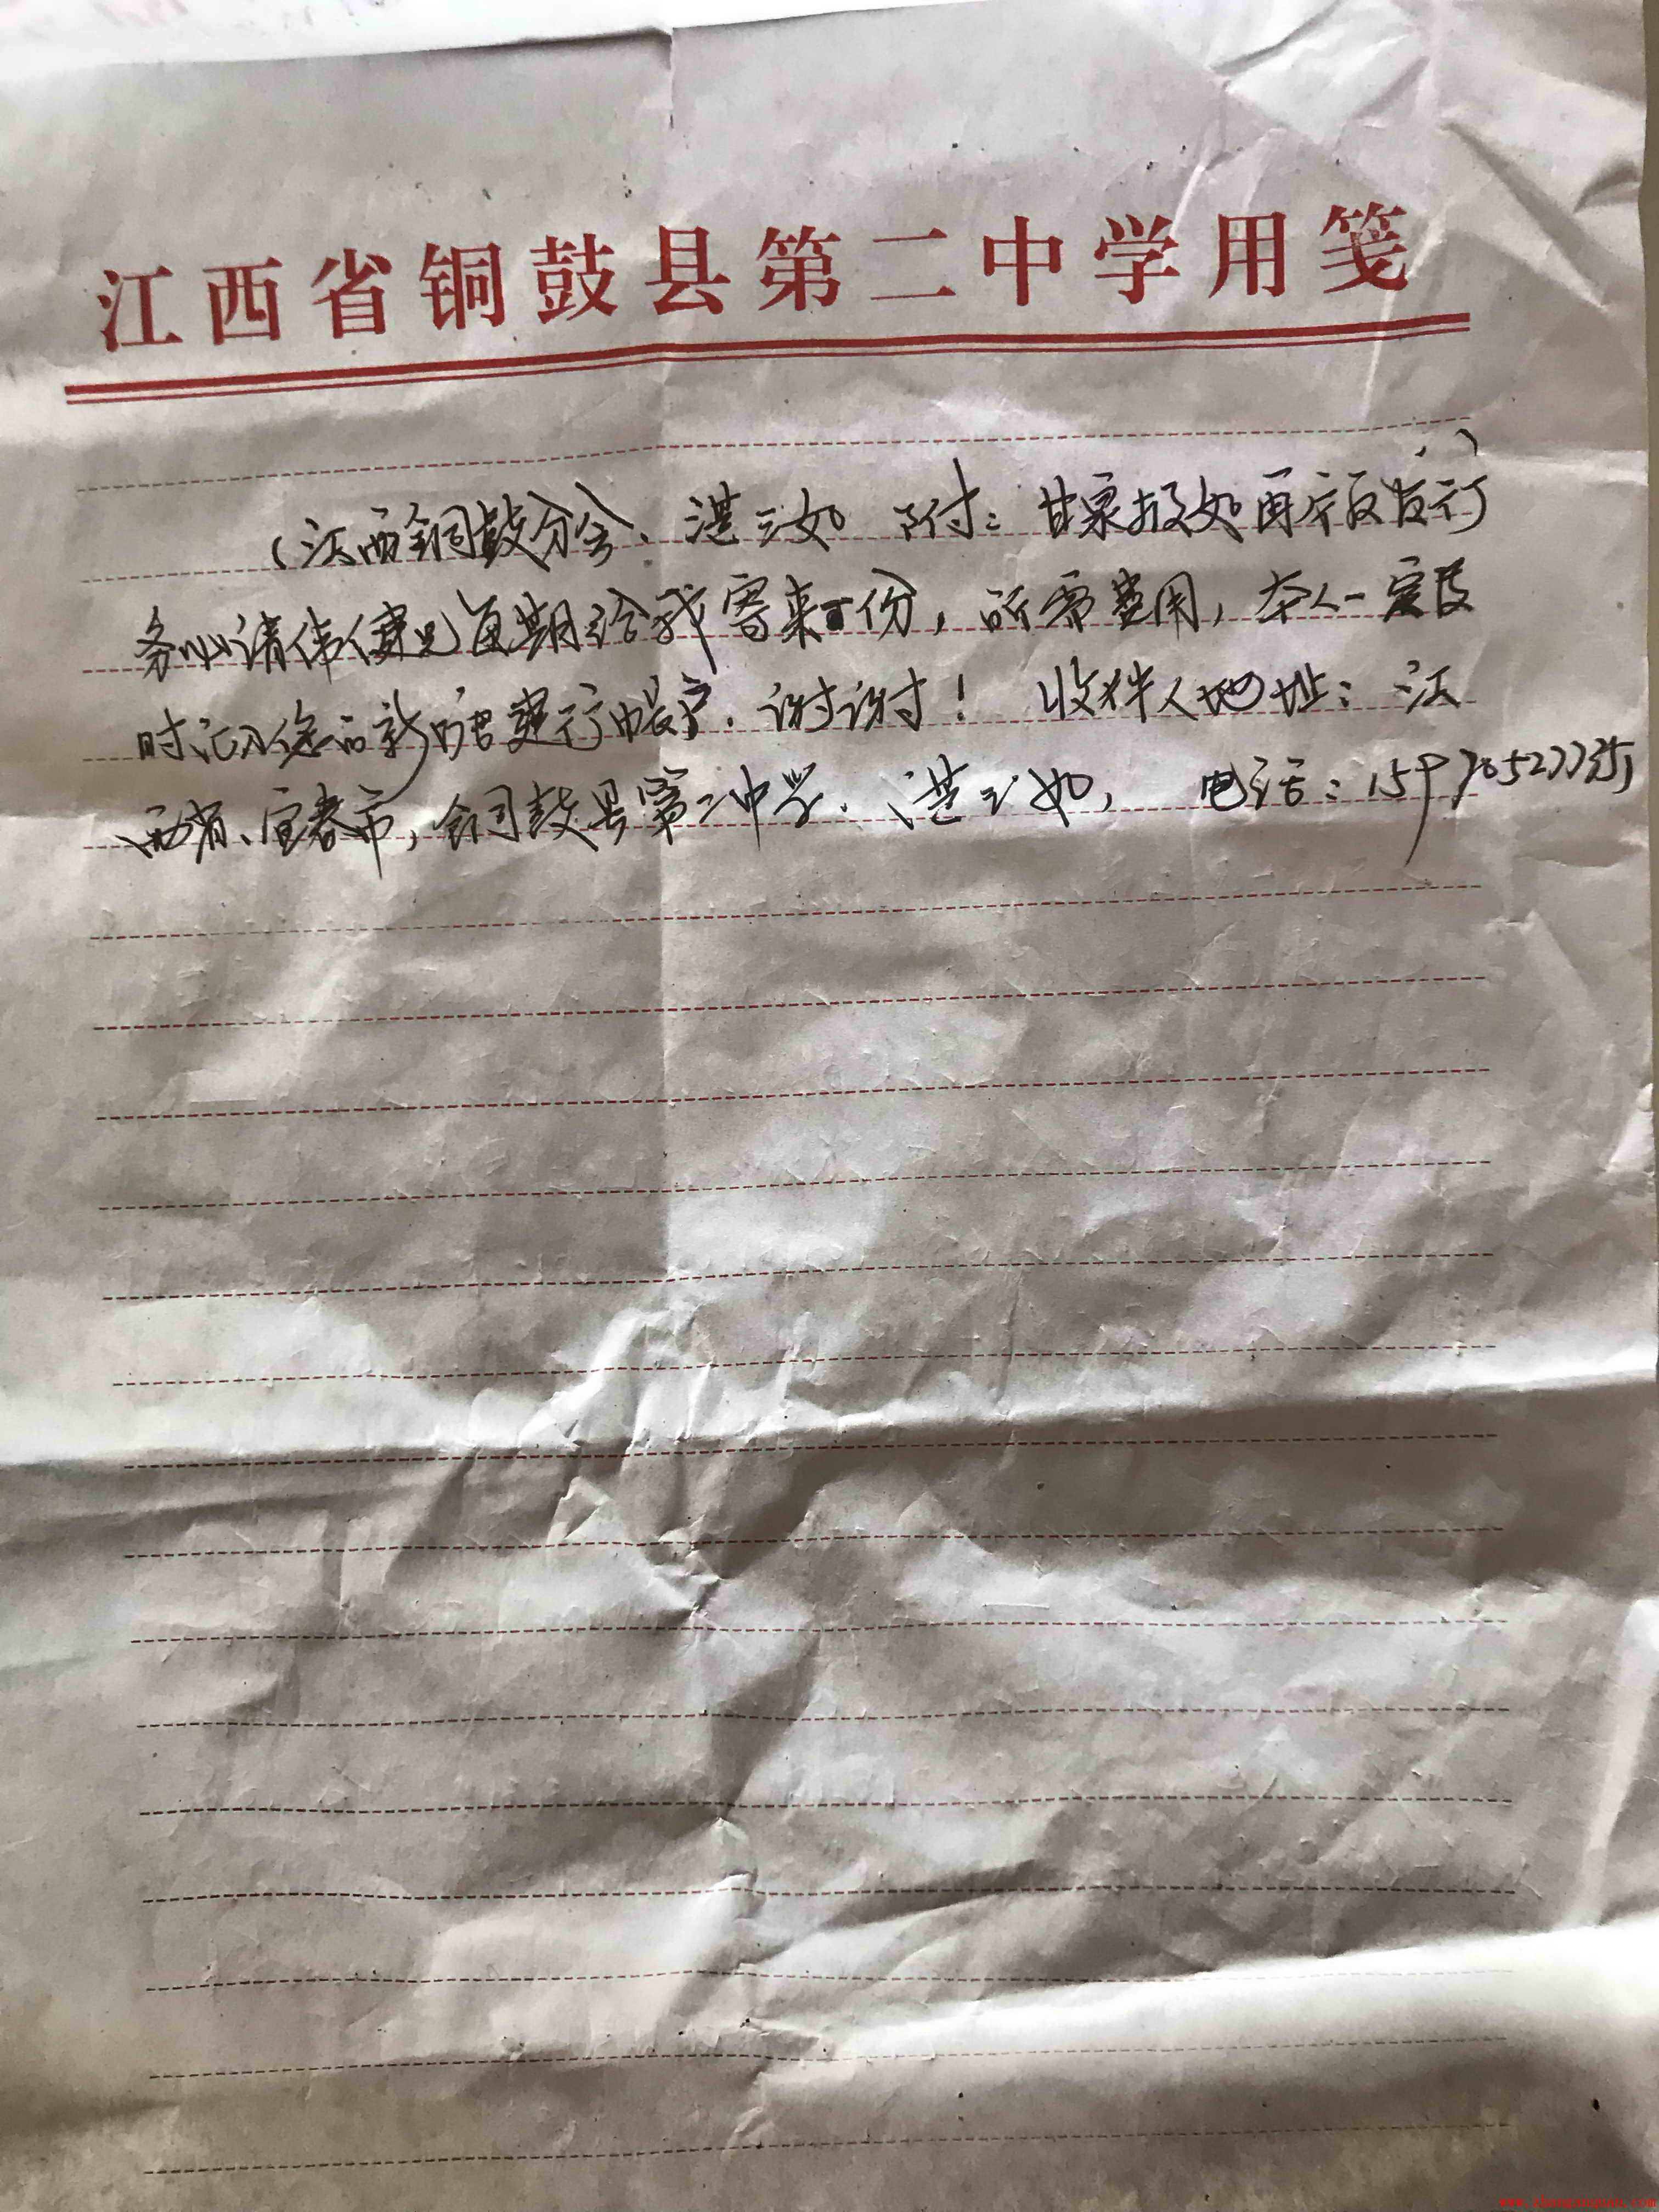 江西省铜鼓县第二中学用笺
(江西铜鼓分会、湛三如 附：甘泉报如再版发行)
务必请伟健兄每期给我寄来 份，所需费用，本人一定及
时汇入 新 建行帐户．谢谢！ 收件人地址：江
西省、宜春市，铜鼓县第二中学．湛三如， 电话：
www.zhangxuquan.com